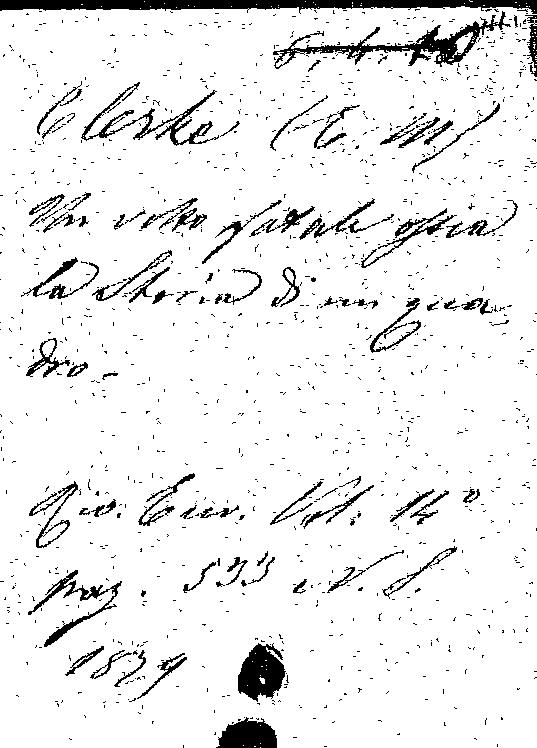 6. 4.
Clerke (E. M)
Un volto fatale ossia
la Storia di un qua-
dro-
Riv. Eur. Vol. 14º
pag. 533 N. S.
1879